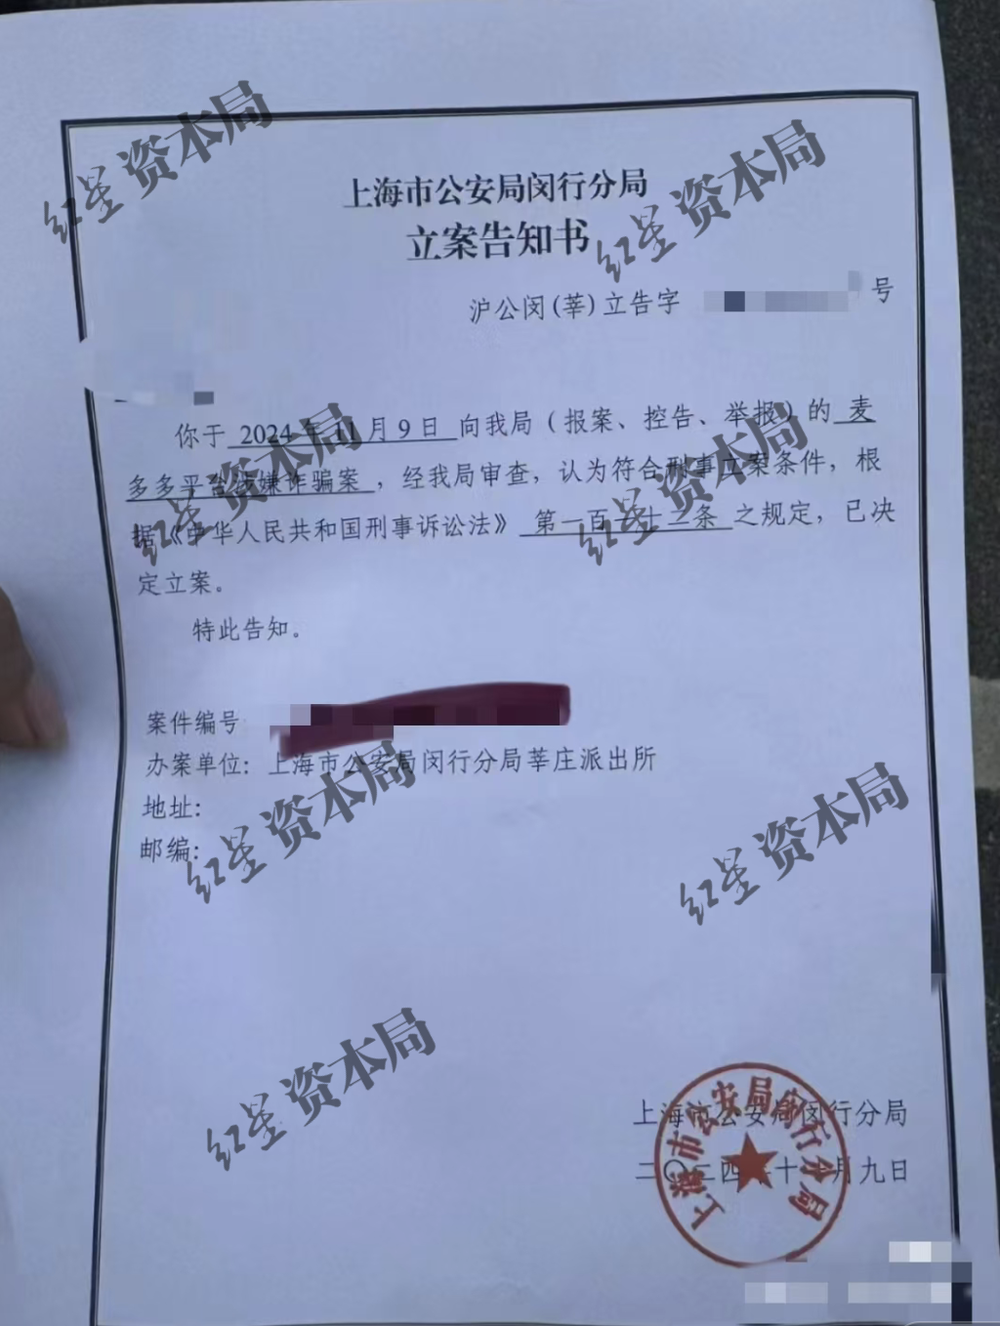 上海市公安局闵行分局
立案告知书
沪公闵(莘)立告字 号
你于 2024年11月9日 向我局（报案、控告、举报）的 麦
多多平台涉嫌诈骗案，经我局审查，认为符合刑事立案条件，根
据《中华人民共和国刑事诉讼法》 第一百一十二条 之规定，已决
定立案。
特此告知。
案件编号
办案单位：上海市公安局闵行分局莘庄派出所
地址：
邮编：
上海市公安局闵行分局
二〇二四年十一月九日
上海市公安局闵行分局
红星资本局
红星资本局
红星资本局
红星资本局
红星资本局
红星资本局
红星资本局